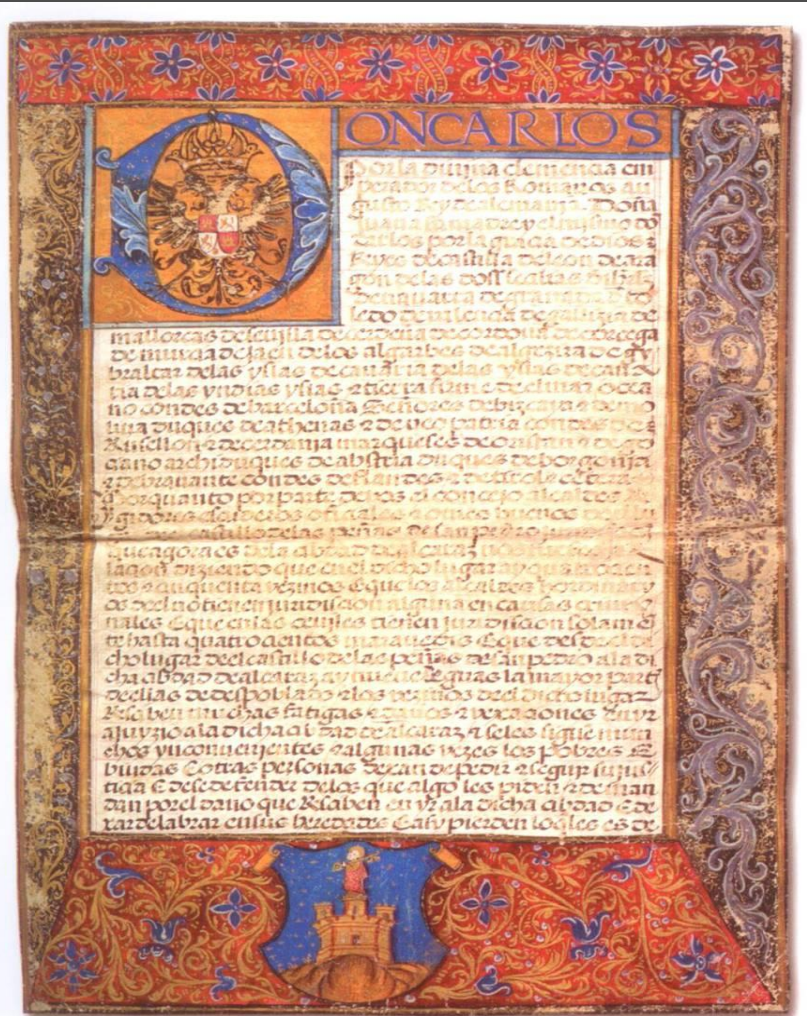 DON CARLOS
Por la divina clemencia em
perador de los Romanos au
gusto Rey de alemania. Doña
Juana su madre y el mismo dõ
Carlos por la gracia de dios
Reyes de castilla de leon de ara
gon de las dos secilias de
de navarra de granada de to
ledo de valencia de gallizia de
mallorcas de sevilla de cerdeña de cordova de corcega
de murcia de jaen de los algarbes de algezira de gi
braltar de las yslas de canaria de las yslas de
las yndias yslas e tierra firme del mar ocea
no condes de barcelona Señores de bizcaya e de mo
lina duques de athenas e de neopatria condes de
Rusellon e de cerdania marqueses de oristan e de go
ciano archiduques de abstria duques de borgoña
e de bravante condes de flandes e de tirol etcetera
Por quanto por parte de vos el concejo alcaldes Re
gidores oficiales e omes buenos del lu
gar del castillo de las peñas de san pedro
que agora es de la cibdad de alcaraz nos fue
diziendo que en el dicho lugar ay
e cinquenta vezinos e que los alcaldes hordinari
os del no tienen juridicion alguna en causas crimi
nales e que en las ceviles tienen juridicion solamẽ
te hasta quatrocientos maravedis e que desde el di
cho lugar del castillo de las peñas de san pedro a la di
cha cibdad de alcaraz ay nueve leguas la mayor parte
dellas de despoblado e los vezinos del dicho lugar
Resciben muchas fatigas e daños e vexaciones en yr
a juyzio a la dicha cibdad de alcaraz e se les sigue mu
chos ynconvenientes e algunas vezes los pobres e
biudas e otras personas dexan de pedir e seguir su jus
ticia e de se defender de los que algo les piden e deman
dan por el daño que Resciben en yr a la dicha cibdad e de
xar de labrar en sus heredades e asy pierden lo que les es de